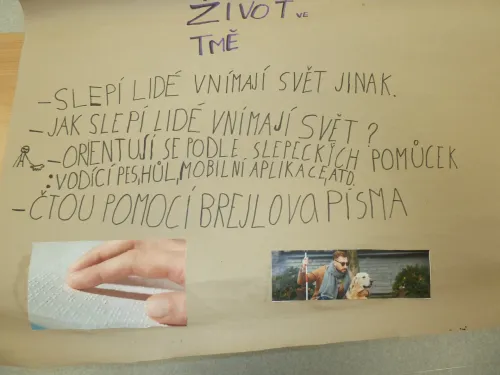 ŽIVOT VE
TMĚ
-SLEPÍ LIDÉ VNÍMAJÍ SVĚT JINAK.
-JAK SLEPÍ LIDÉ VNÍMAJÍ SVĚT?
-ORIENTUJÍ SE PODLE SLEPECKÝCH POMŮCEK
:VODÍCÍ PES, HŮL, MOBILNÍ APLIKACE, ATD.
-ČTOU POMOCÍ BREJLOVA PÍSMA